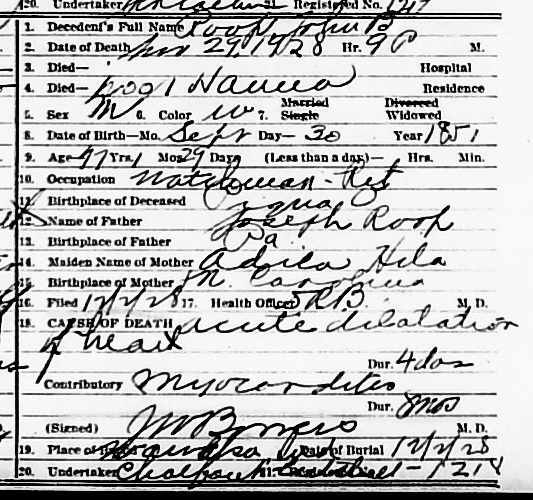 20. Undertaker Registered No.
1. Decedent's Full Name Roop John B
2. Date of Death Nov 29, 1928 Hr. 9 P M.
3. Died— Hospital
4. Died— 1001 Hanna Residence
5. Sex M 6. Color W 7. Married Single Divorced Widowed
8. Date of Birth—Mo. Sept Day— 30 Year 1851
9. Age 77 Yrs. 1 Mos 29 Days (Less than a day)— Hrs. Min.
10. Occupation Watchman - Ret
11. Birthplace of Deceased
12. Name of Father Joseph Roop
13. Birthplace of Father Pa
14. Maiden Name of Mother Hila
15. Birthplace of Mother N. Carolina
16. Filed 12/2/28 17. Health Officer M. D.
18. CAUSE OF DEATH acute dilatation
of heart
Dur. 4 das
Contributory Myocarditis
Dur. 8 mos
(Signed) M. D.
19. Place of Date of Burial 12/2/28
20. Undertaker